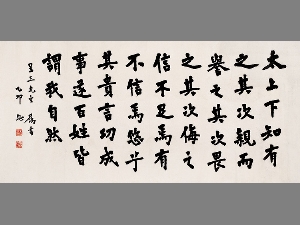 太上下知有
之其次親而
譽之其次畏
之其次侮之
信不足焉有
不信焉悠乎
其貴言功成
事遂百姓皆
謂我自然